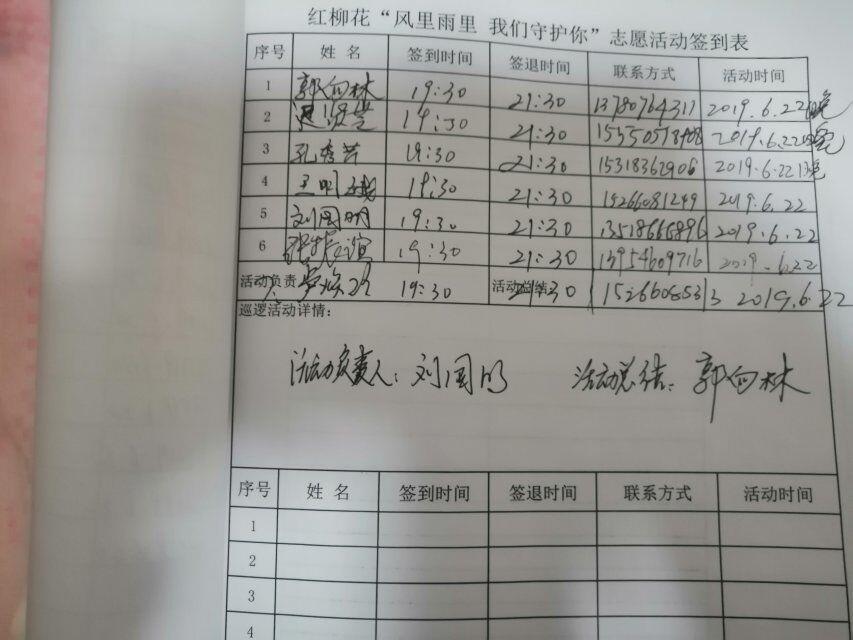 红柳花“风里雨里 我们守护你”志愿活动签到表
序号 姓名 签到时间 签退时间 联系方式 活动时间
1 郭向林 19:30 21:30 13780764311 2019.6.22晚
2 19:30 21:30 2019.6.22晚
3 孔秀芳 19:30 21:30 15318362906 2019.6.22晚
4 王明 19:30 21:30 2019.6.22
5 刘国明 19:30 21:30 13518666896 2019.6.22
6 张振谊 19:30 21:30 13954609716 2019.6.22
活动负责 19:30 活动总结 21:30 15266085313 2019.6.22
巡逻活动详情:
活动负责人:刘国明 活动总结:郭向林
序号 姓名 签到时间 签退时间 联系方式 活动时间
1
2
3
4